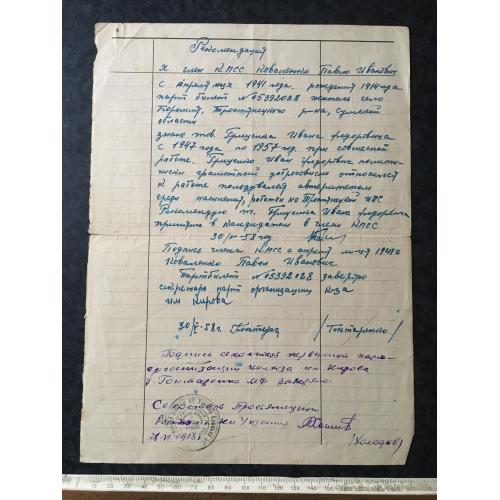 Рекомендация
Я член КПСС Коваленко Павло Иванович
с апреля м-ця 1941 года, рождения 1914 года
парт билет № 05392028 житель село
Тростянецкого р-на, Сумской
области
знаю тов. Гриценка Ивана Федоровича
с 1947 года по 1957 год при совместной
работе. Гриценко Иван Федорович полити-
чески грамотный добросовисно относился
к работе пользовался авторитетом
среди населения, работая на Тростянецкой
Рекомендую т. Гриценка Ивана Федоровича
принять в кандидаты в члени КПСС
58 год
Подпись члена КПСС с апреля м-ця 1941 г
Коваленко Павел Иванович
Партбилет № 05392028 заверяю
секретарь парт организации к-за
им Кирова
30/V-58 г. /Гонтаренко/
Подпись секретаря первичной парт-
организации колхоза им Кирова
т. Гонтаренко М.Ф. заверяю.
Секретарь Тростянецкого
Украины